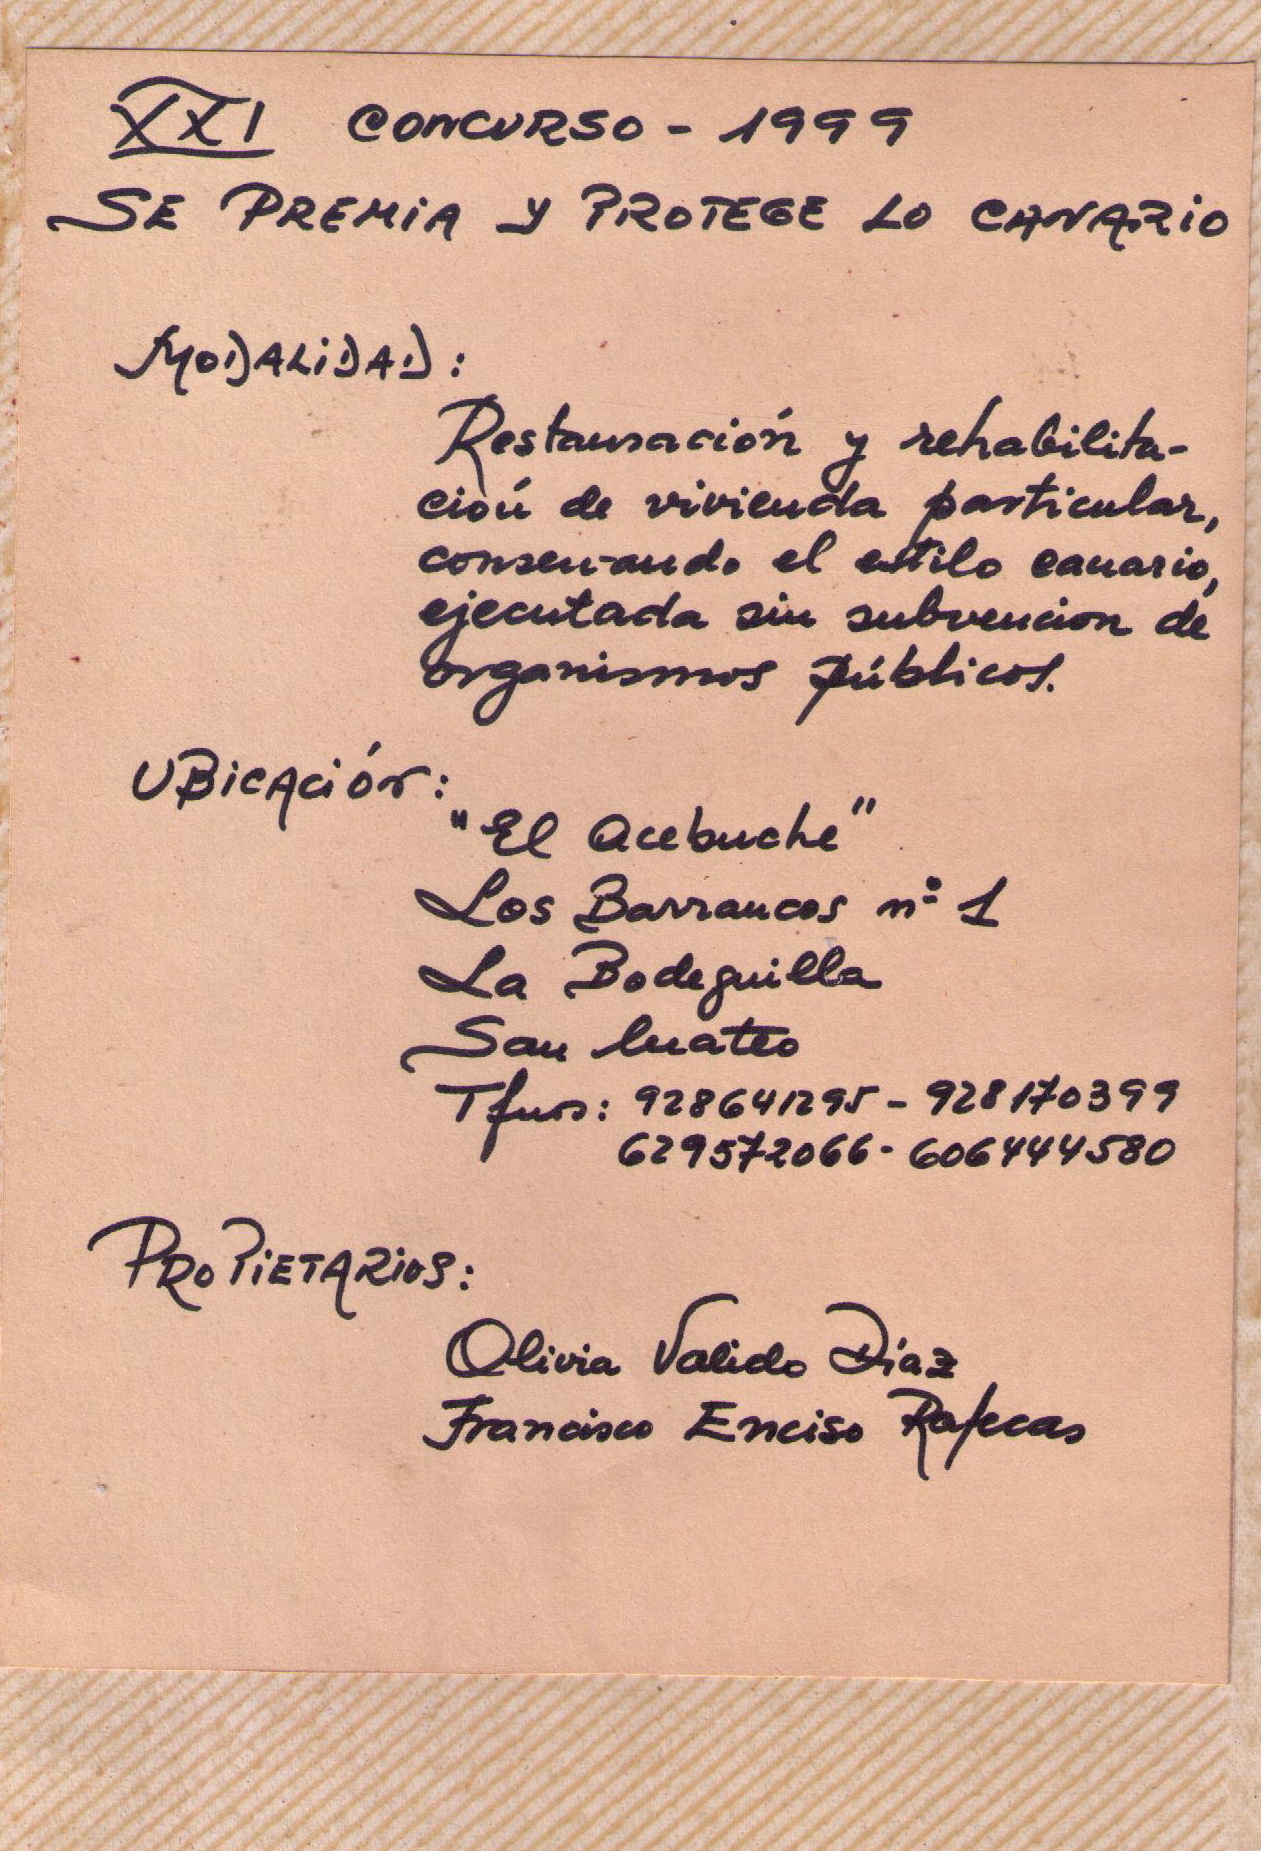 XXI CONCURSO - 1999
SE PREMIA Y PROTEGE LO CANARIO
MODALIDAD:
Restauración y rehabilita-
ción de vivienda particular,
conservando el estilo canario,
ejecutada sin subvencion de
organismos públicos.
UBICACIÓN:
"El Acebuche"
Los Barrancos nº 1
La Bodeguilla
San Mateo
Tfnos: 928641295 - 928170399
629572066 - 606444580
PROPIETARIOS:
Olivia Valido Díaz
Francisco Enciso Rafecas